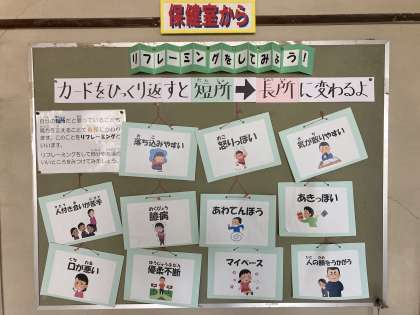 保健室から
リフレーミングをしてみよう!
カードをひっくり返すと短所➡長所に変わるよ
落ち込みやすい
怒りっぽい
気が散りやすい
人付き合いが苦手
臆病
あわてんぼう
あきっぽい
口が悪い
優柔不断
マイペース
人の顔をうかがう